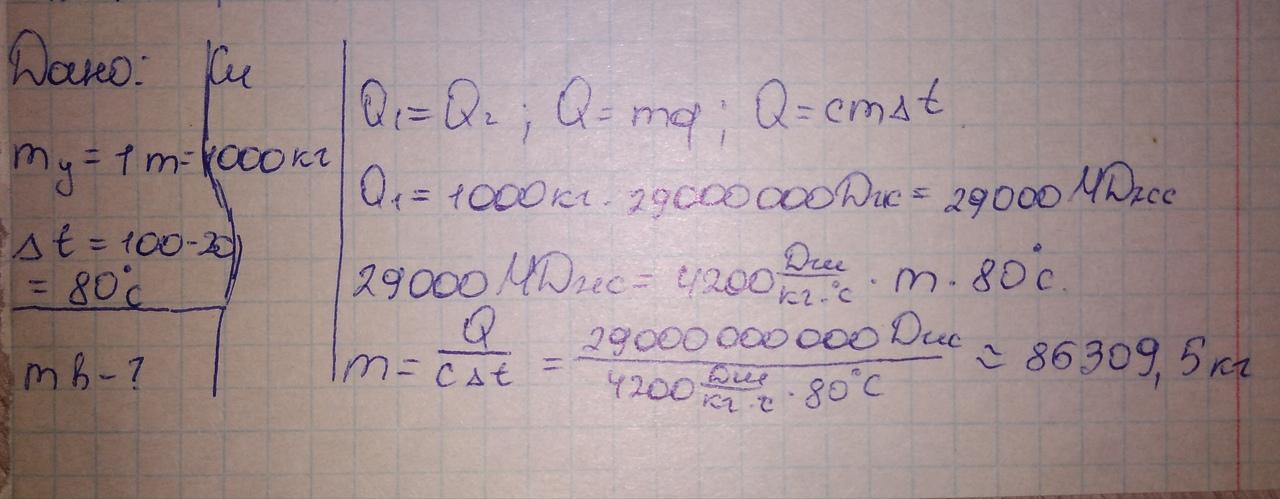 Дано:
Си
m у = 1 т = 1000 кг
Δt = 100-20
= 80°с
m в - ?
Q₁ = Q₂ ; Q = mq ; Q = cmΔt
Q₁ = 1000 кг · 29000000 Дж = 29000 МДж
29000 МДж = 4200 Дж/кг·°с · m · 80°с.
m = Q/cΔt = 29000000000 Дж/4200 Дж/кг·°с · 80°С ≈ 86309,5 кг